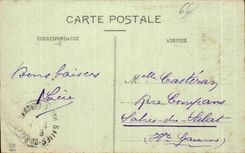 66
CARTE POSTALE
CORRESPONDANCE
ADRESSE
Bons baisers
Mlle Castéran
Rue Compans
Salies-du-Salat
Hte Garonne